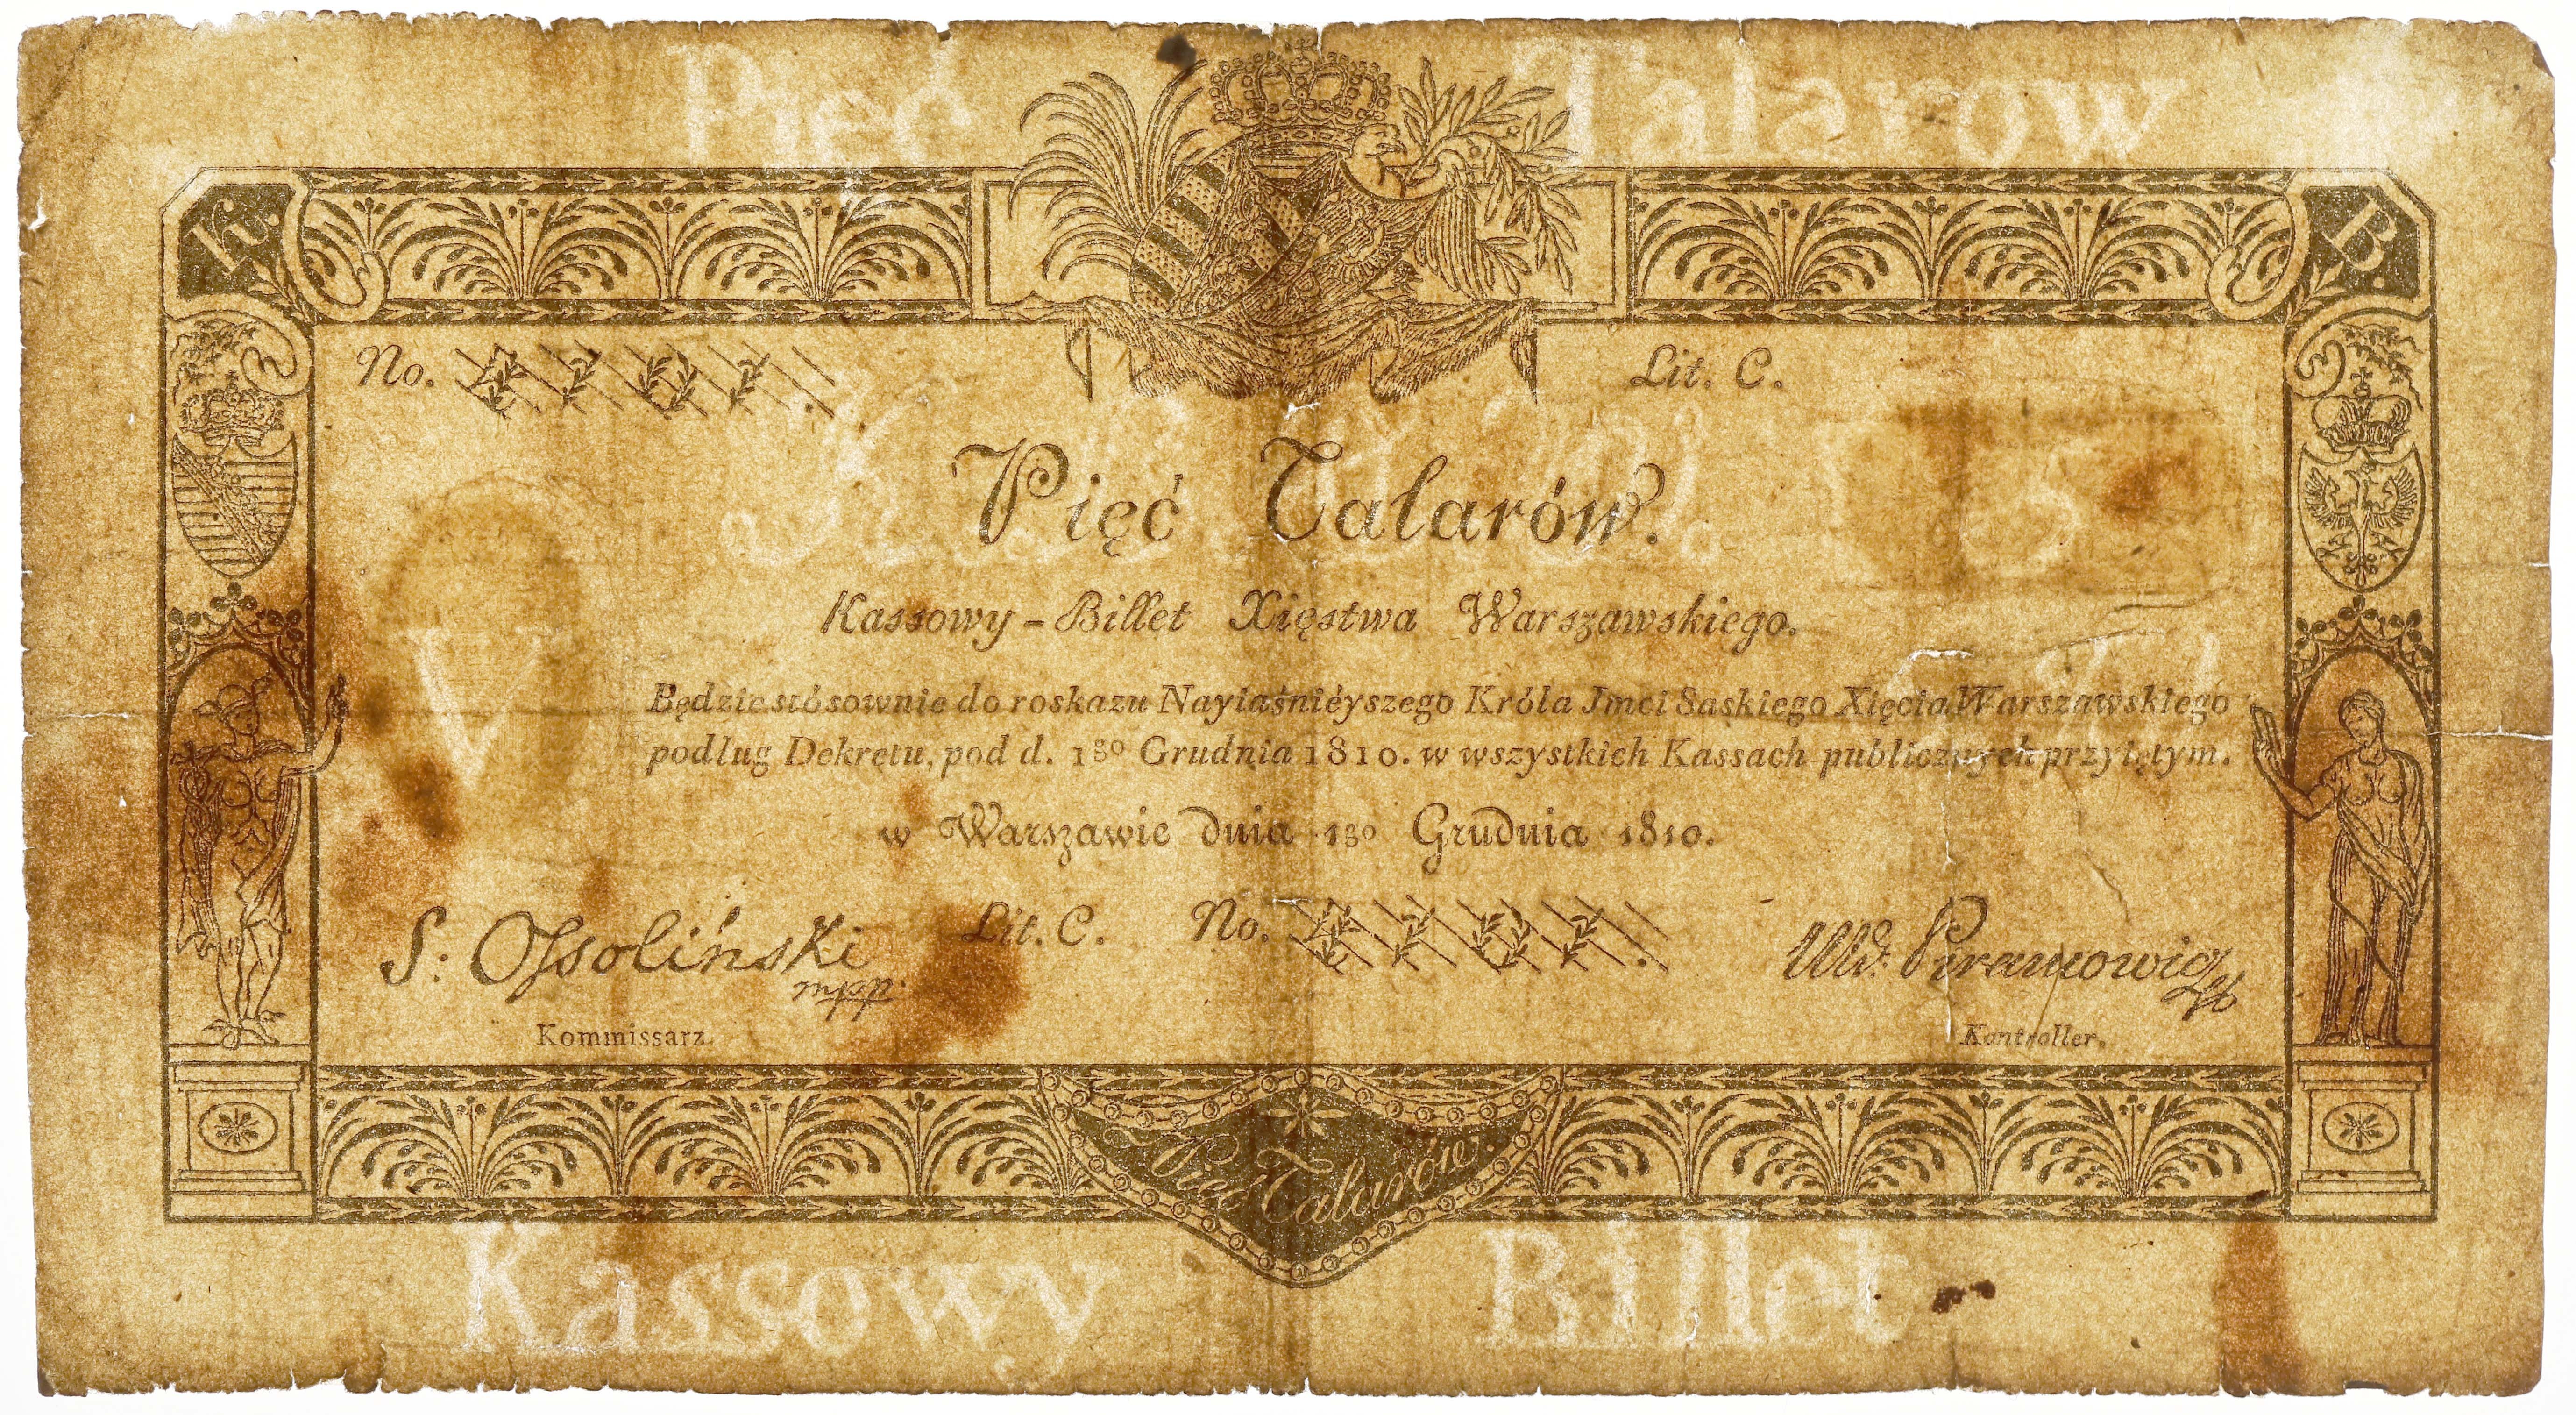 Pięć Talarow
K. B.
No. Lit. C.
Pięć Talarów.
5
Kassowy-Billet Xięstwa Warszawskiego.
V
Będzie stósownie do roskazu Nayiaśniéyszego Króla Jmci Saskiego Xięcia Warszawskiego
podług Dekretu, pod d. 1go Grudnia 1810. w wszystkich Kassach publicznych przyiętym.
w Warszawie dnia 1go Grudnia 1810.
S: Ossoliński mpp. Lit. C. No. Wd. Piramowicz
Kommissarz. Kontroller.
Pięć Talarów.
Kassowy Billet